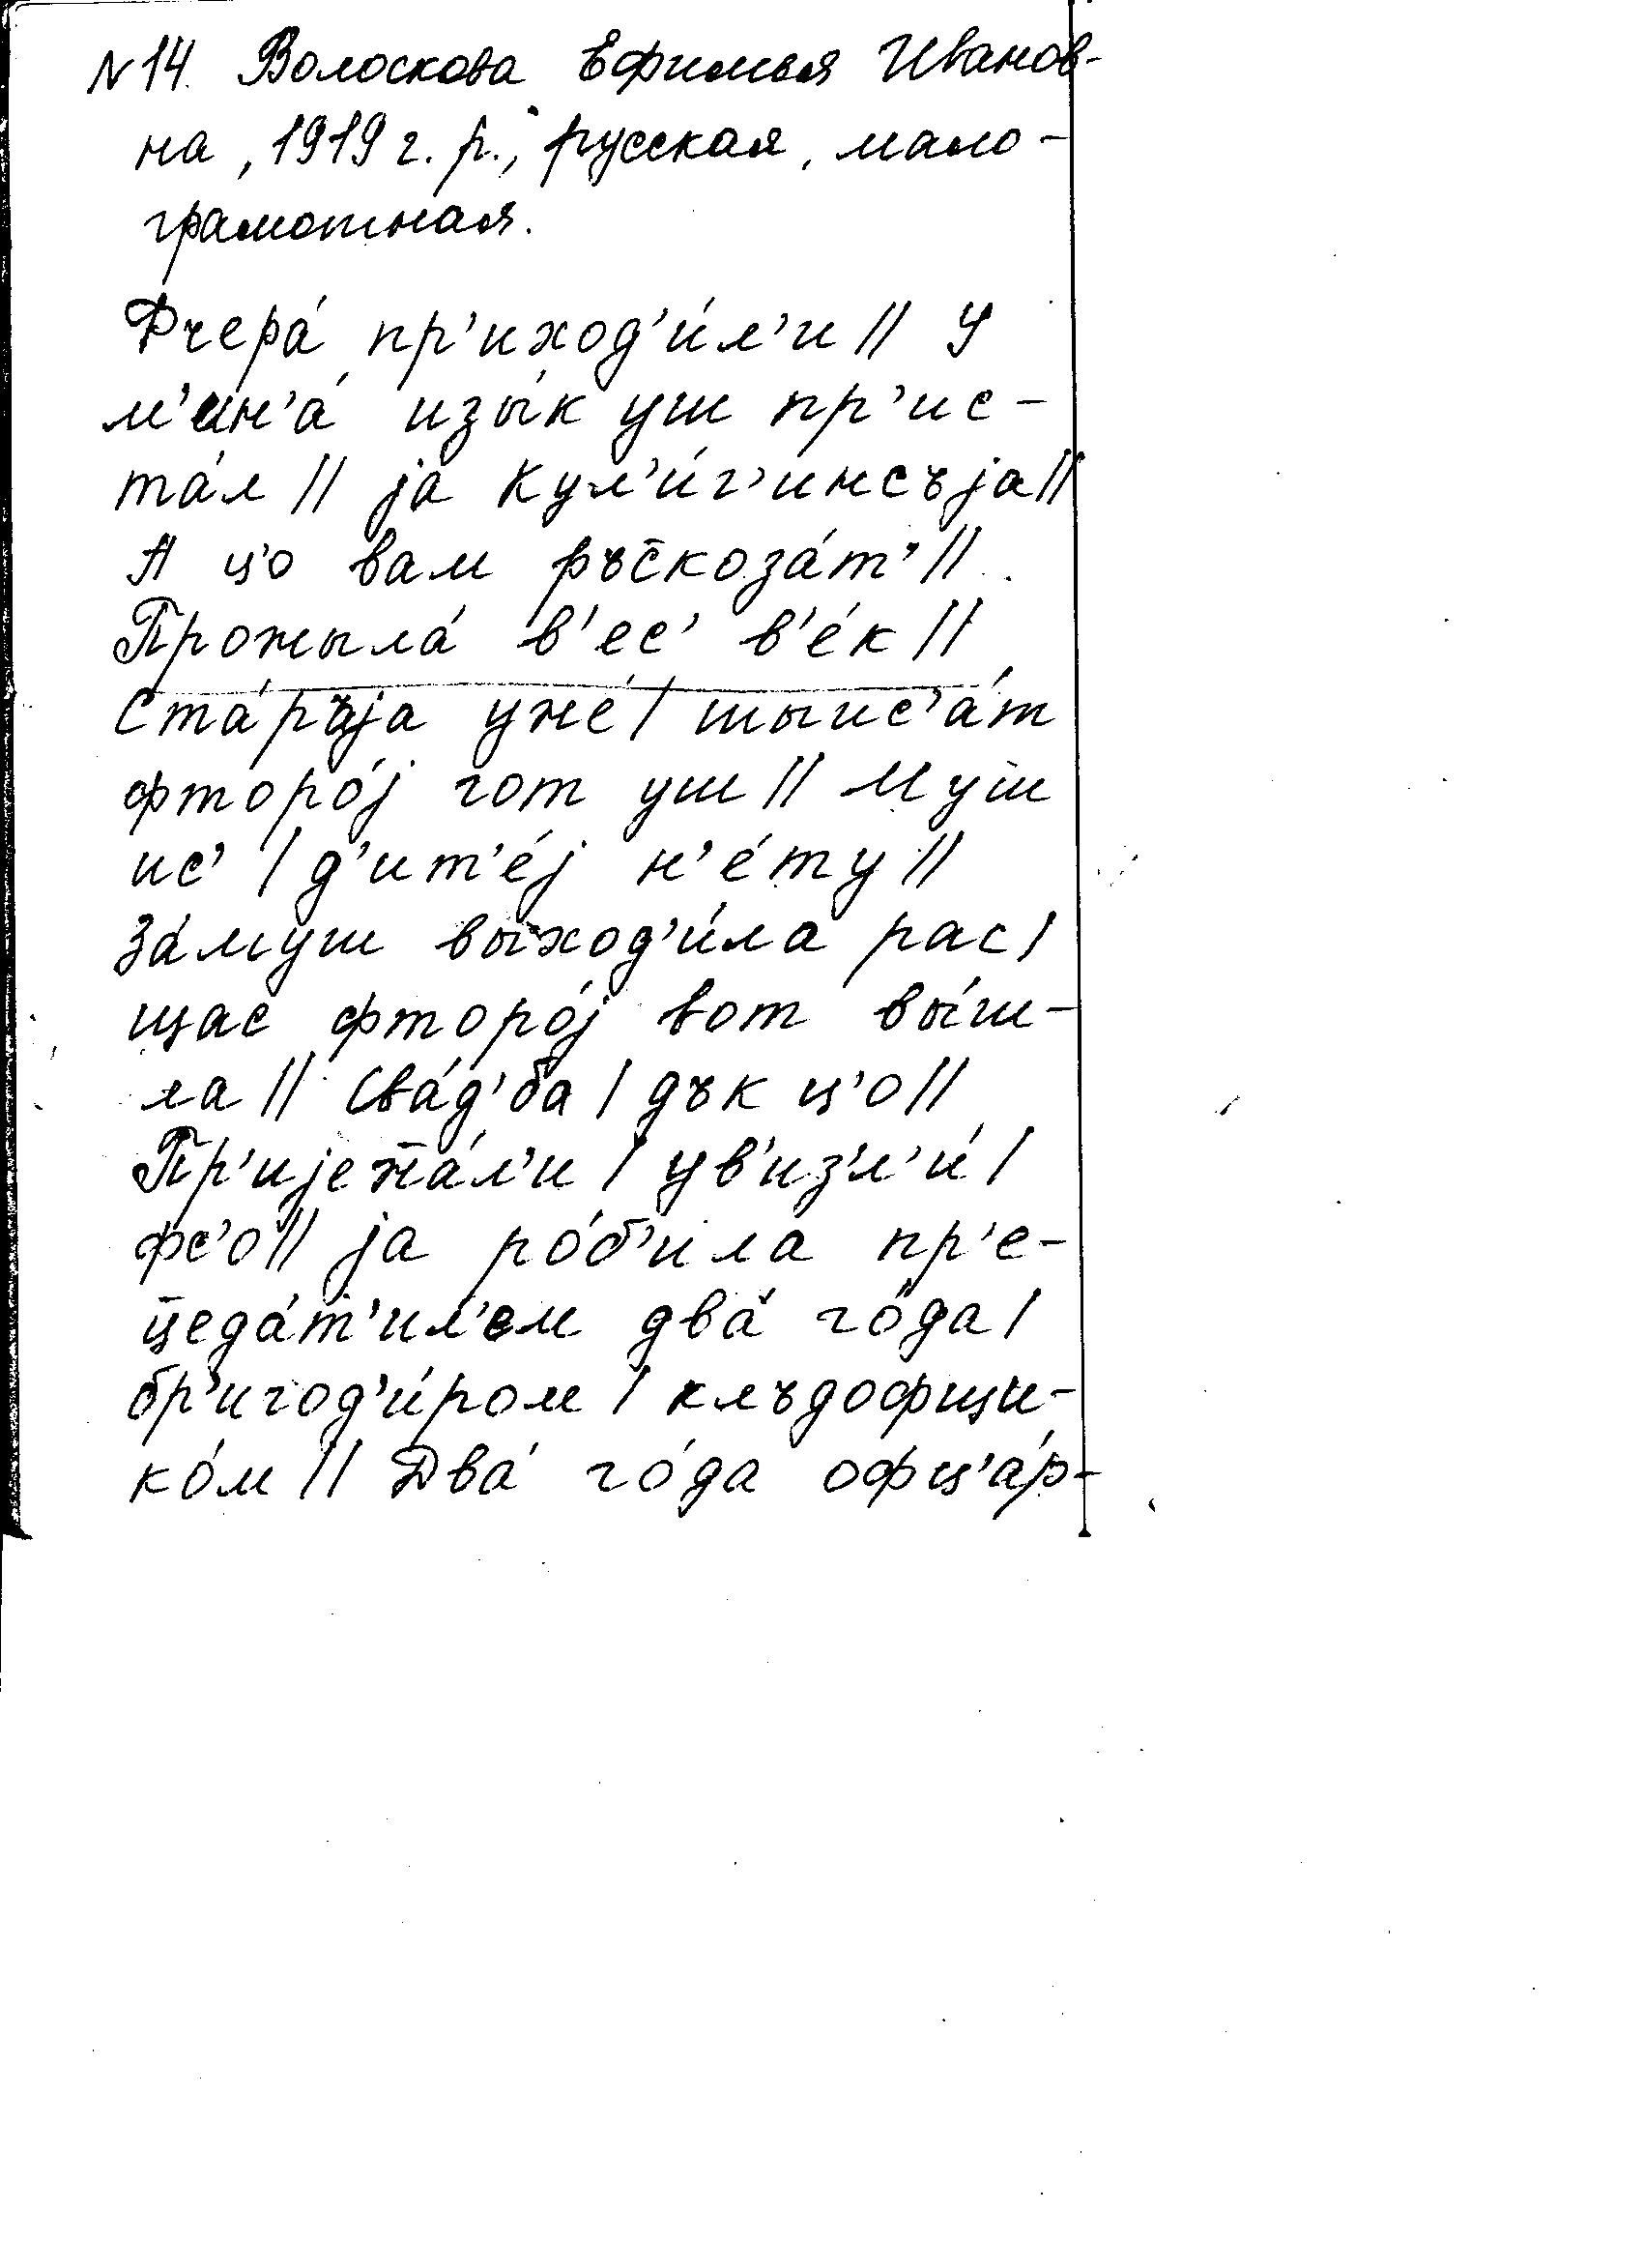 N14. Волоскова Ефимья Иванов-
на, 1919 г. р., русская, мало-
грамотная.
Фчера́ пр'иход'и́л'и || У
м'ин'а́ изы́к уш пр'ис-
та́л || jа Кул'и́г'инсъjа ||
А цо вам ръс̄коза́т' ||
Прожыла́ в'ес' в'е́к ||
Ста́ръjа уже́ | шыис'а́т
фторо́j гот уш || Муш
ис' | д'ит'е́j н'е́ту ||
За́муш выход'и́ла рас |
щас фторо́j вот вы́ш-
ла || Сва́д'ба | дък ц'о ||
Пр'иjежа́л'и | ув'изл'и́ |
фс'о || jа ро́б'ила пр'е-
цеда́т'ил'ем два́ го́да |
бр'игод'и́ром | клъдофщи-
ко́м || Два́ го́да офц'а́р-